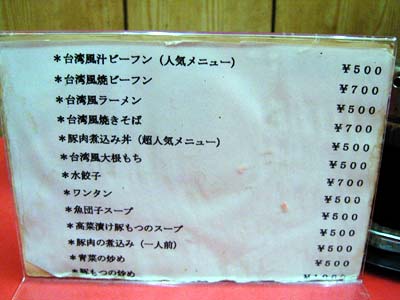 *台湾風汁ビーフン(人気メニュー) ¥500
*台湾風焼ビーフン ¥700
*台湾風ラーメン ¥500
*台湾風焼きそば ¥700
*豚肉煮込み丼(超人気メニュー) ¥500
*台湾風大根もち ¥500
*水餃子 ¥700
*ワンタン ¥500
*魚団子スープ ¥500
*高菜漬け豚もつのスープ ¥500
*豚肉の煮込み(一人前) ¥500
*青菜の炒め ¥500
*豚もつの炒め